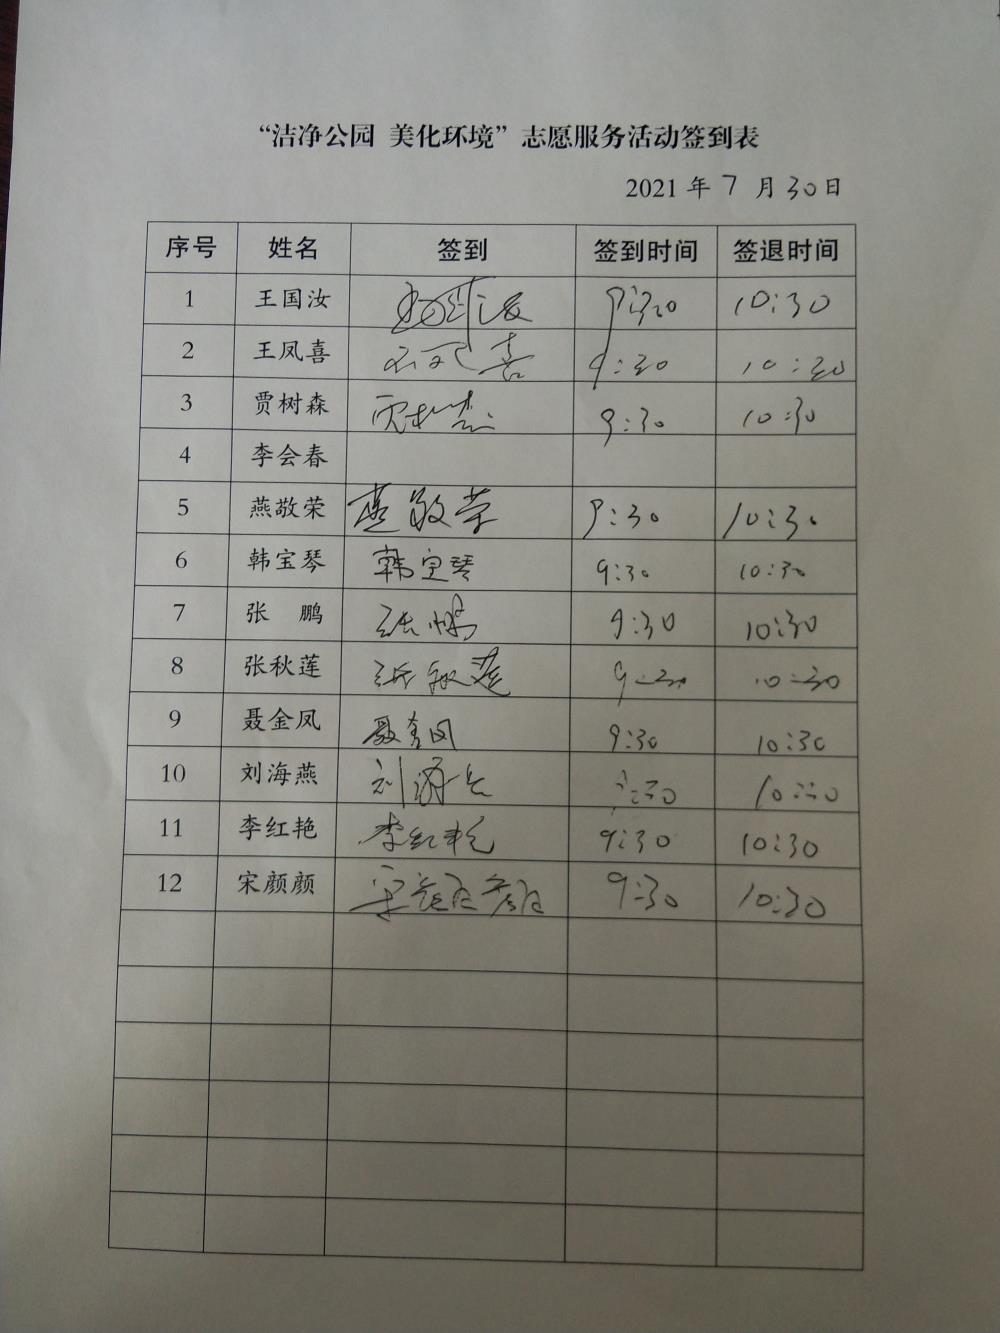 “洁净公园 美化环境”志愿服务活动签到表
2021 年 7 月 30 日
序号 姓名 签到 签到时间 签退时间
1 王国汝 9:30 10:30
2 王凤喜 王凤喜 9:30 10:30
3 贾树森 贾树森 9:30 10:30
4 李会春
5 燕敬荣 燕敬荣 9:30 10:30
6 韩宝琴 韩宝琴 9:30 10:30
7 张 鹏 张鹏 9:30 10:30
8 张秋莲 张秋莲 9:30 10:30
9 聂金凤 聂金凤 9:30 10:30
10 刘海燕 刘海燕 9:30 10:30
11 李红艳 李红艳 9:30 10:30
12 宋颜颜 宋颜颜 9:30 10:30